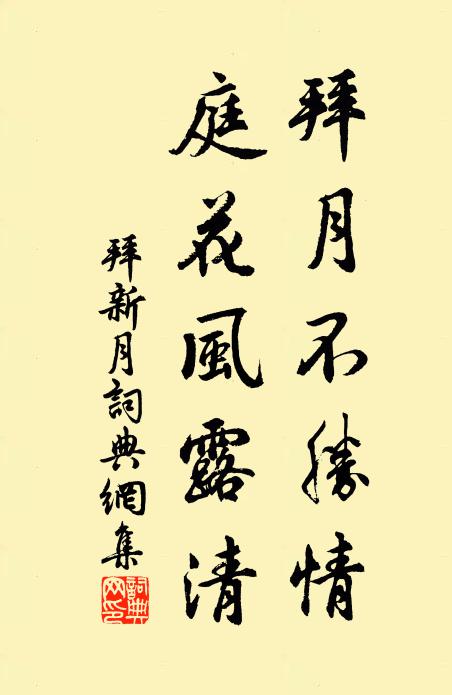 拜月不勝情
庭花風露清
拜新月詞典網集
詞典
网印